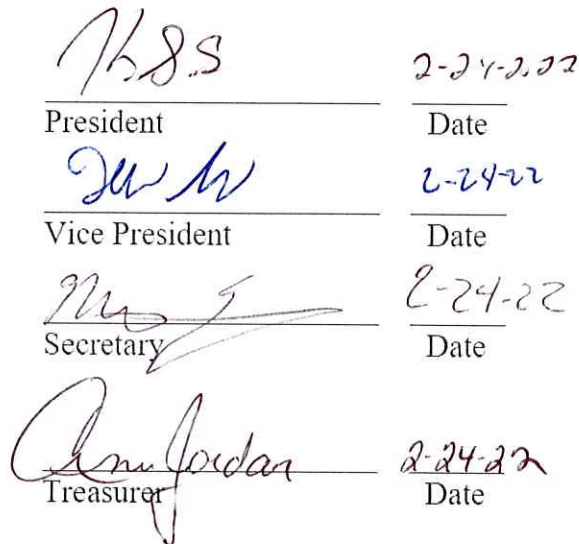 2-24-2022
President Date
2-24-22
Vice President Date
2-24-22
Secretary Date
Jordan 2-24-22
Treasurer Date